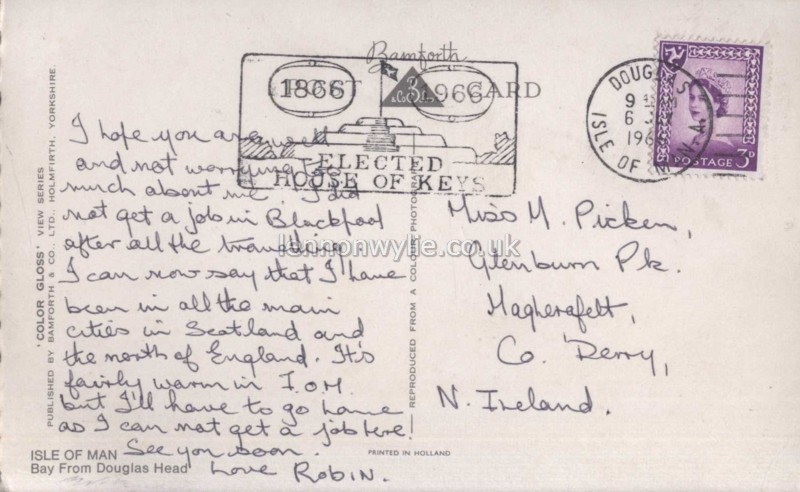 Bamforth
POST CARD
1866 1966
ELECTED
HOUSE OF KEYS
DOUGLAS
9
6
196
ISLE OF MAN
POSTAGE 3D
I hope you are well
and not worrying too
much about me. I did
not get a job in Blackpool
after all the travelling.
I can now say that I have
been in all the main
cities in Scotland and
the north of England. It's
fairly warm in I.O.M.
but I'll have to go home
as I can not get a job here!
See you soon.
Love Robin.
Miss M. Picken,
Glenburn Pk.
Magherafelt,
Co. Derry,
N. Ireland.
lennonwylie.co.uk
'COLOR GLOSS' VIEW SERIES
PUBLISHED BY BAMFORTH & CO., LTD., HOLMFIRTH, YORKSHIRE.
REPRODUCED FROM A COLOUR PHOTOGRAPH
ISLE OF MAN
Bay From Douglas Head
PRINTED IN HOLLAND